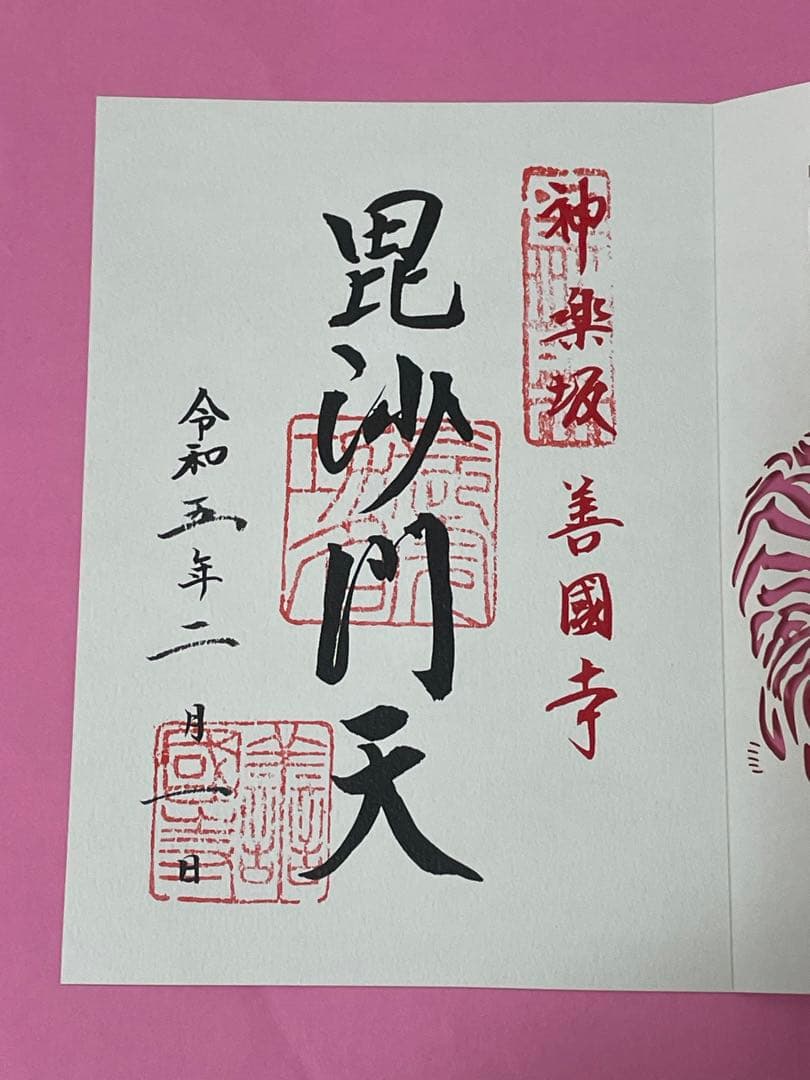 神楽坂 善國寺
毘沙門天
令和五年二月一日
善國寺